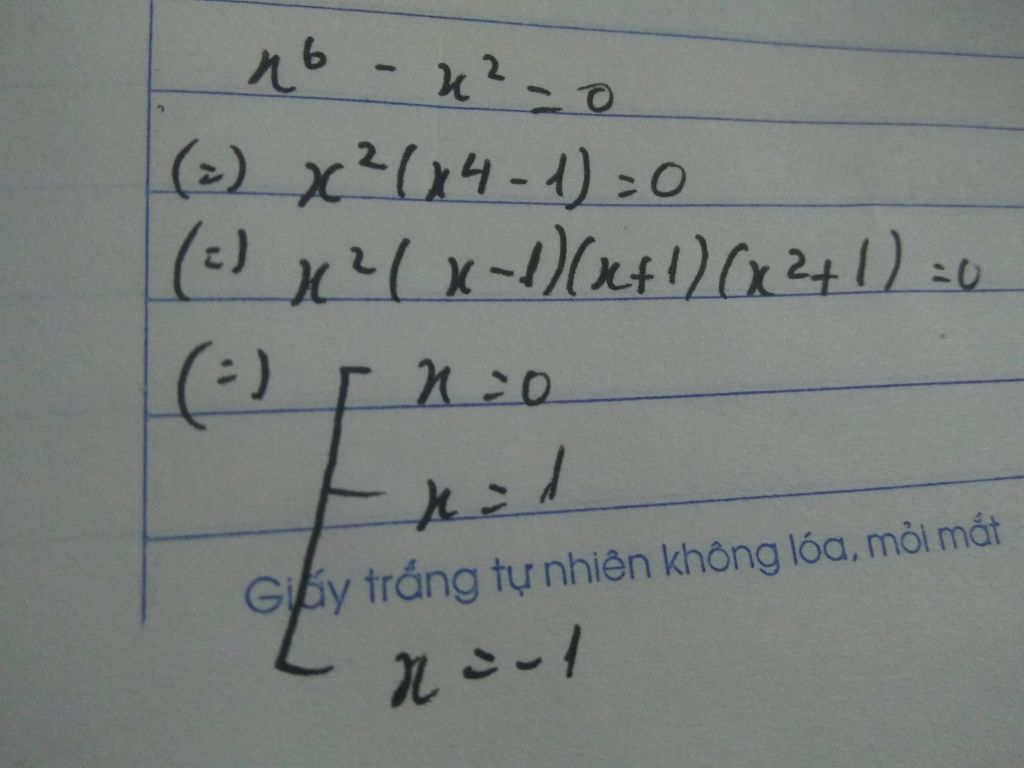 x⁶ - x² = 0
(=) x²(x4 - 1) = 0
(=) x²(x-1)(x+1)(x2+1) = 0
(=) x = 0
x = 1
Giấy trắng tự nhiên không lóa, mỏi mắt
x = -1